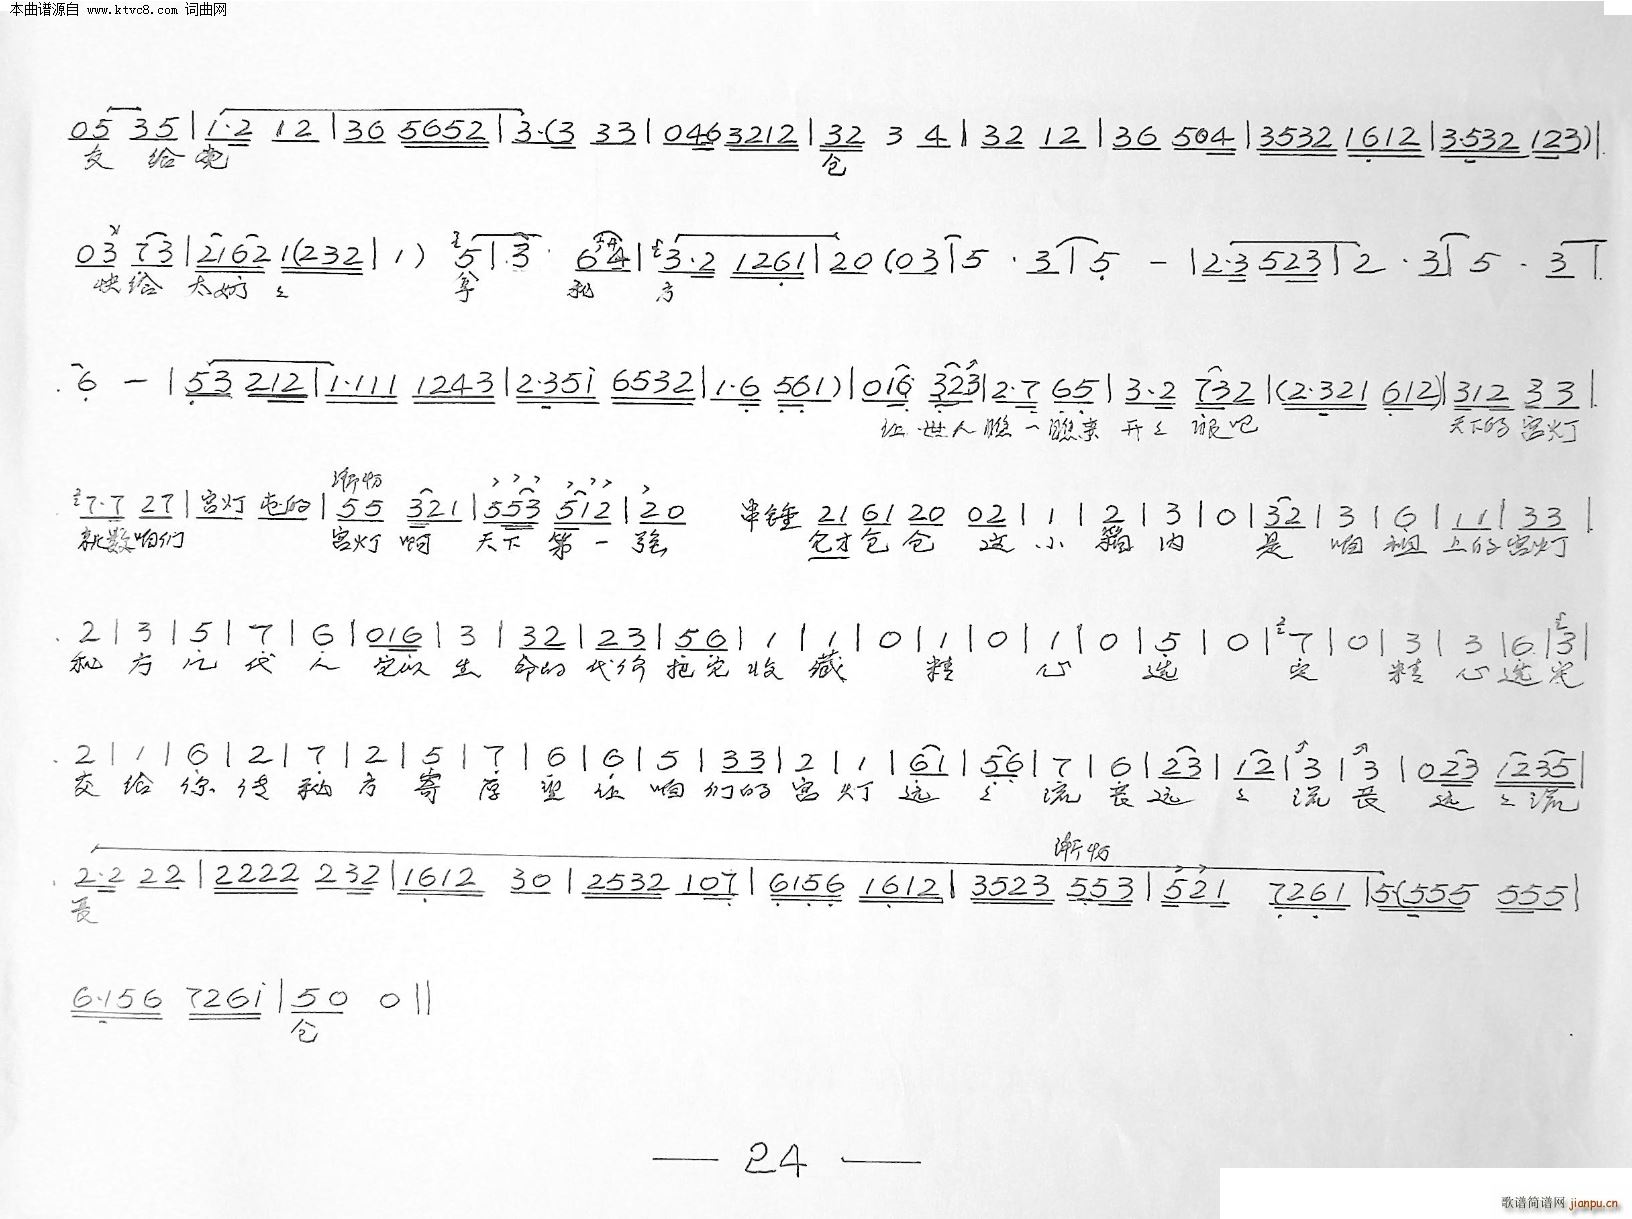 本曲谱源自 www.ktvc8.com 词曲网
05 35 | 1·2 12 | 36 5652 | 3·(3 33 | 0463212 | 32 3 4 | 32 12 | 36 504 | 3532 1612 | 3·532 123) |
交 给 俺 仓
03 73 | 2162 1(232 | 1) 5 | 3· 64 | 3·2 1261 | 20 (03 | 5 · 3 | 5 - | 2·3523 | 2 · 3 | 5 · 3 |
快给 太奶々 拿 秘 方
6 - | 53 212 | 1·111 1243 | 2·35i 6532 | 1·6 561) | 016 323 | 2·7 65 | 3·2 732 | (2·321 612) | 312 33 |
让世人瞧一瞧来开々眼吧 天下的宫灯
7·7 27 | 宫灯 屯的 | 渐慢 55 321 | 553 512 | 20 串锤 21 61 20 02 | 1 | 2 | 3 | 0 | 32 | 3 | 6 | 11 | 33 |
就数咱们 宫灯 啊 天下 第一强 仓才仓仓 这小箱内 是咱祖上的宫灯
2 | 3 | 5 | 7 | 6 | 016 | 3 | 32 | 23 | 56 | 1 | 1 | 0 | 1 | 0 | 1 | 0 | 5 | 0 | 7 | 0 | 3 | 3 | 6 | 3 |
秘方几代人 生命的代价把它收藏 精心选定精心选定
2 | 1 | 6 | 2 | 7 | 2 | 5 | 7 | 6 | 6 | 5 | 33 | 2 | 1 | 61 | 56 | 7 | 6 | 23 | 12 | 3 | 3 | 023 1235 |
交给你传秘方寄厚望让咱们的宫灯远々流长远々流长 远々流
渐慢
2·2 22 | 2222 232 | 1612 30 | 2532 107 | 6156 1612 | 3523 553 | 521 7261 | 5(555 555 |
长
6·156 726i | 50 0 ||
仓
— 24 —
歌谱简谱网 jianpu.cn